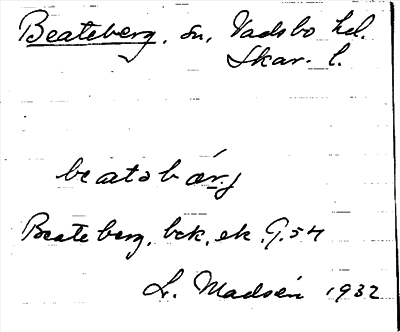 Beateberg, sn, Vadsbo hd.
Skar. l.
beatəbær.j
Beateberg, bck, ek, G.54
L. Madsén 1932